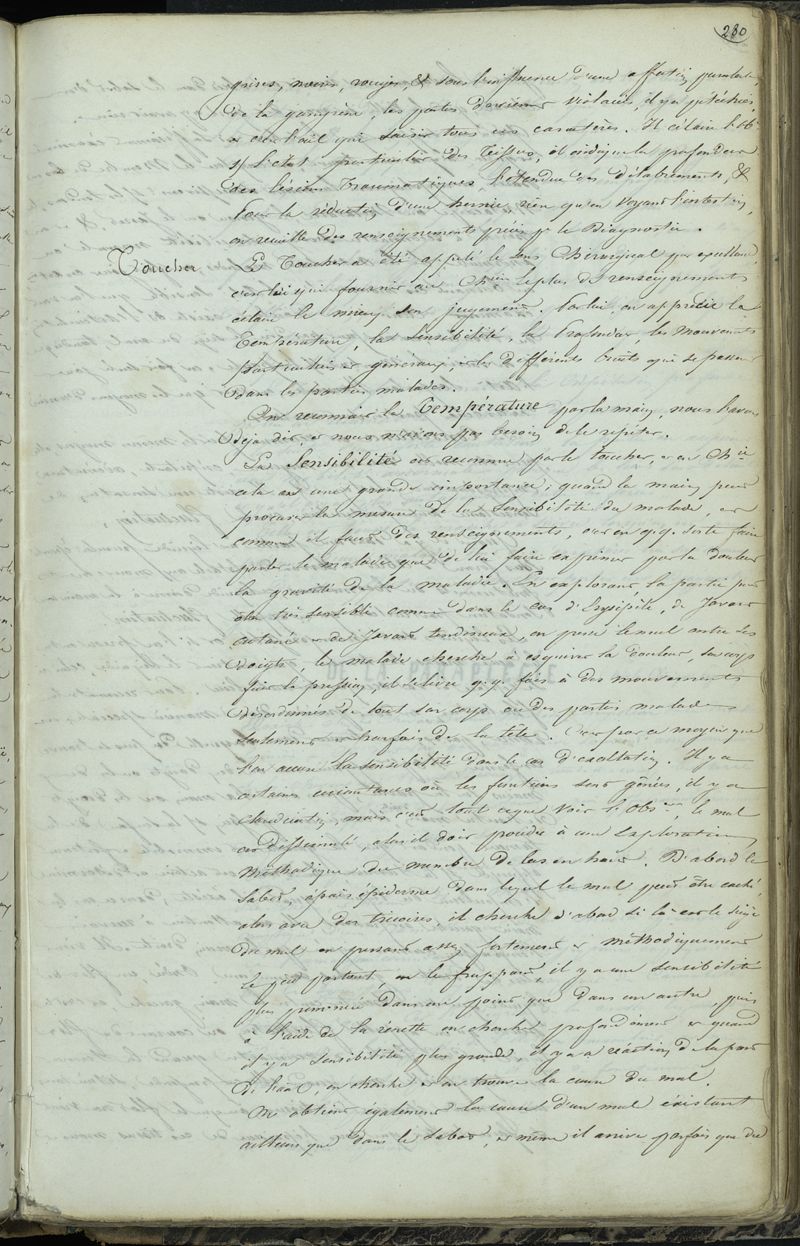 280
grises, noires, rouges, & sous l'influence d'une affection purulente,
de la gangrène, les parties deviennent violacées, il y a pétéchies,
et c'est l'œil qui saisit tous ces caractères. Il éclaire l'obs
s/ l'état particulier des tissus, il indique la profondeur
des lésions traumatiques, l'étendue des délabrements, &
Pour la réduction d'une hernie rien qu'en voyant l'intestin,
on recueille des renseignements précis pr le Diagnostic.
Toucher
Le Toucher a été appelé le sens Chirurgical par excellence,
c'est lui qui fournit au Chien le plus de renseignements
éclaire le mieux son jugement. Par lui, on apprécie la
Température, la sensibilité, la profondeur, les mouvements
particuliers et généraux, et les différents bruits qui se passent
dans les parties malades.
On reconnait la Température par la main, nous l'avons
déjà dit, et nous n'avons pas besoin de le répéter.
La Sensibilité est reconnue par le toucher, et en Chie
cela est une grande importance; quand la main peut
procurer la mesure de la sensibilité du malade, et
comme il faut des renseignements, c'est en q.q. sorte faire
parler le malade que de lui faire exprimer par la douleur
la gravité de la maladie. En explorant la partie
très sensible comme dans le cas d'Erysipèle, de Javart
cutané et de Javart tendineux, on presse le mal entre les
doigts, le malade cherche à esquiver la douleur, son corps
fuit la pression, il se livre q.q. fois à des mouvements
désordonnés de tout son corps ou des parties malades
seulement et parfois de la tête. C'est par ce moyen que
l'on accuse la sensibilité dans le cas d'exaltation. Il y a
certaines circonstances où les fonctions sont gênées, il y a
claudication, mais c'est tout ce que voit l'Obs, le mal
est dissimulé, alors il doit procéder à une exploration
méthodique du membre de bas en haut. D'abord le
sabot, épais épiderme dans lequel le mal peut être caché,
alors avec des tricoises, il cherche d'abord si là est le siège
du mal en pressant assez fortement et méthodiquement
le pied partout, en le frappant, il y a une sensibilité
plus prononcée dans un point que dans un autre, puis
à l'aide de la renette on cherche profondément et quand
il y a sensibilité plus grande, il y a réaction de la part
de l'aal, on cherche et on trouve la cause du mal.
On obtient également la cause d'un mal existant
ailleurs que dans le sabot, et même il arrive parfois que du